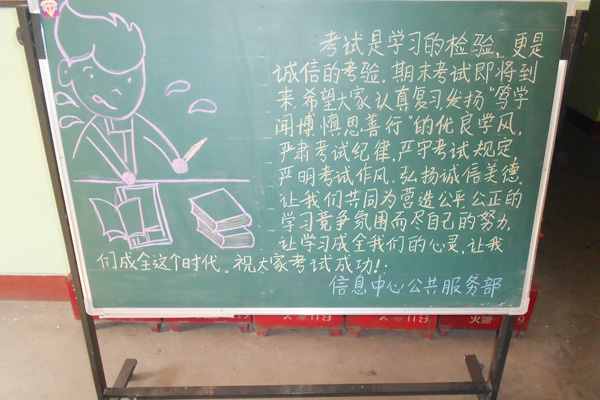 考试是学习的检验，更是
诚信的考验，期末考试即将到
来，希望大家认真复习，发扬“笃学
闻博 慎思善行”的优良学风，
严肃考试纪律，严守考试规定，
严明考试作风，弘扬诚信美德，
让我们共同为营造公平公正的
学习竞争氛围而尽自己的努力，
让学习成全我们的心灵，让我
们成全这个时代。祝大家考试成功！
信息中心公共服务部